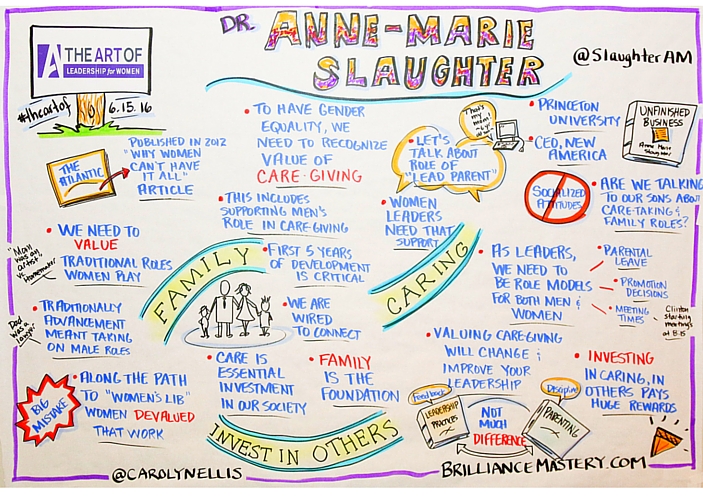 THE ART OF
LEADERSHIP for WOMEN
#theartof
6.15.16
DR. ANNE-MARIE
SLAUGHTER
@SlaughterAM
THE
ATLANTIC
PUBLISHED IN 2012
"WHY WOMEN
CAN'T HAVE
IT ALL"
ARTICLE
• TO HAVE GENDER
EQUALITY, WE
NEED TO RECOGNIZE
VALUE OF
CARE-GIVING
• THIS INCLUDES
SUPPORTING MEN'S
ROLE IN CARE-GIVING
That's
my
• LET'S
TALK ABOUT
ROLE OF
"LEAD PARENT"
• WOMEN
LEADERS
NEED THAT
SUPPORT
• PRINCETON
UNIVERSITY
• CEO, NEW
AMERICA
UNFINISHED
BUSINESS
Anne Marie
Slaughter
SOCIALIZED
ATTITUDES
• ARE WE TALKING
TO OUR SONS ABOUT
CARE-TAKING &
FAMILY ROLES?
• WE NEED TO
VALUE
TRADITIONAL ROLES
WOMEN PLAY
"Mom
was an
artist
vs.
Homemaker"
FAMILY
• FIRST 5 YEARS
OF DEVELOPMENT
IS CRITICAL
• WE ARE
WIRED
TO CONNECT
CARING
• AS LEADERS,
WE NEED TO
BE ROLE MODELS
FOR BOTH MEN &
WOMEN
• PARENTAL
LEAVE
• PROMOTION
DECISIONS
• MEETING
TIMES
Clinton
starting
meetings
at 8:15
Dad
was a
lawyer
• TRADITIONALLY
ADVANCEMENT
MEANT TAKING
ON MALE ROLES
BIG
MISTAKE
• ALONG THE PATH
TO "WOMEN'S LIB"
WOMEN DEVALUED
THAT WORK
• CARE IS
ESSENTIAL
INVESTMENT
IN OUR SOCIETY
• FAMILY
IS THE
FOUNDATION
INVEST IN OTHERS
• VALUING CAREGIVING
WILL CHANGE &
IMPROVE YOUR
LEADERSHIP
Feedback
LEADERSHIP
PRACTICES
NOT
MUCH
DIFFERENCE
Discipline
PARENTING
• INVESTING
IN CARING, IN
OTHERS PAYS
HUGE REWARDS
@CAROLYNELLIS
BRILLIANCEMASTERY.COM